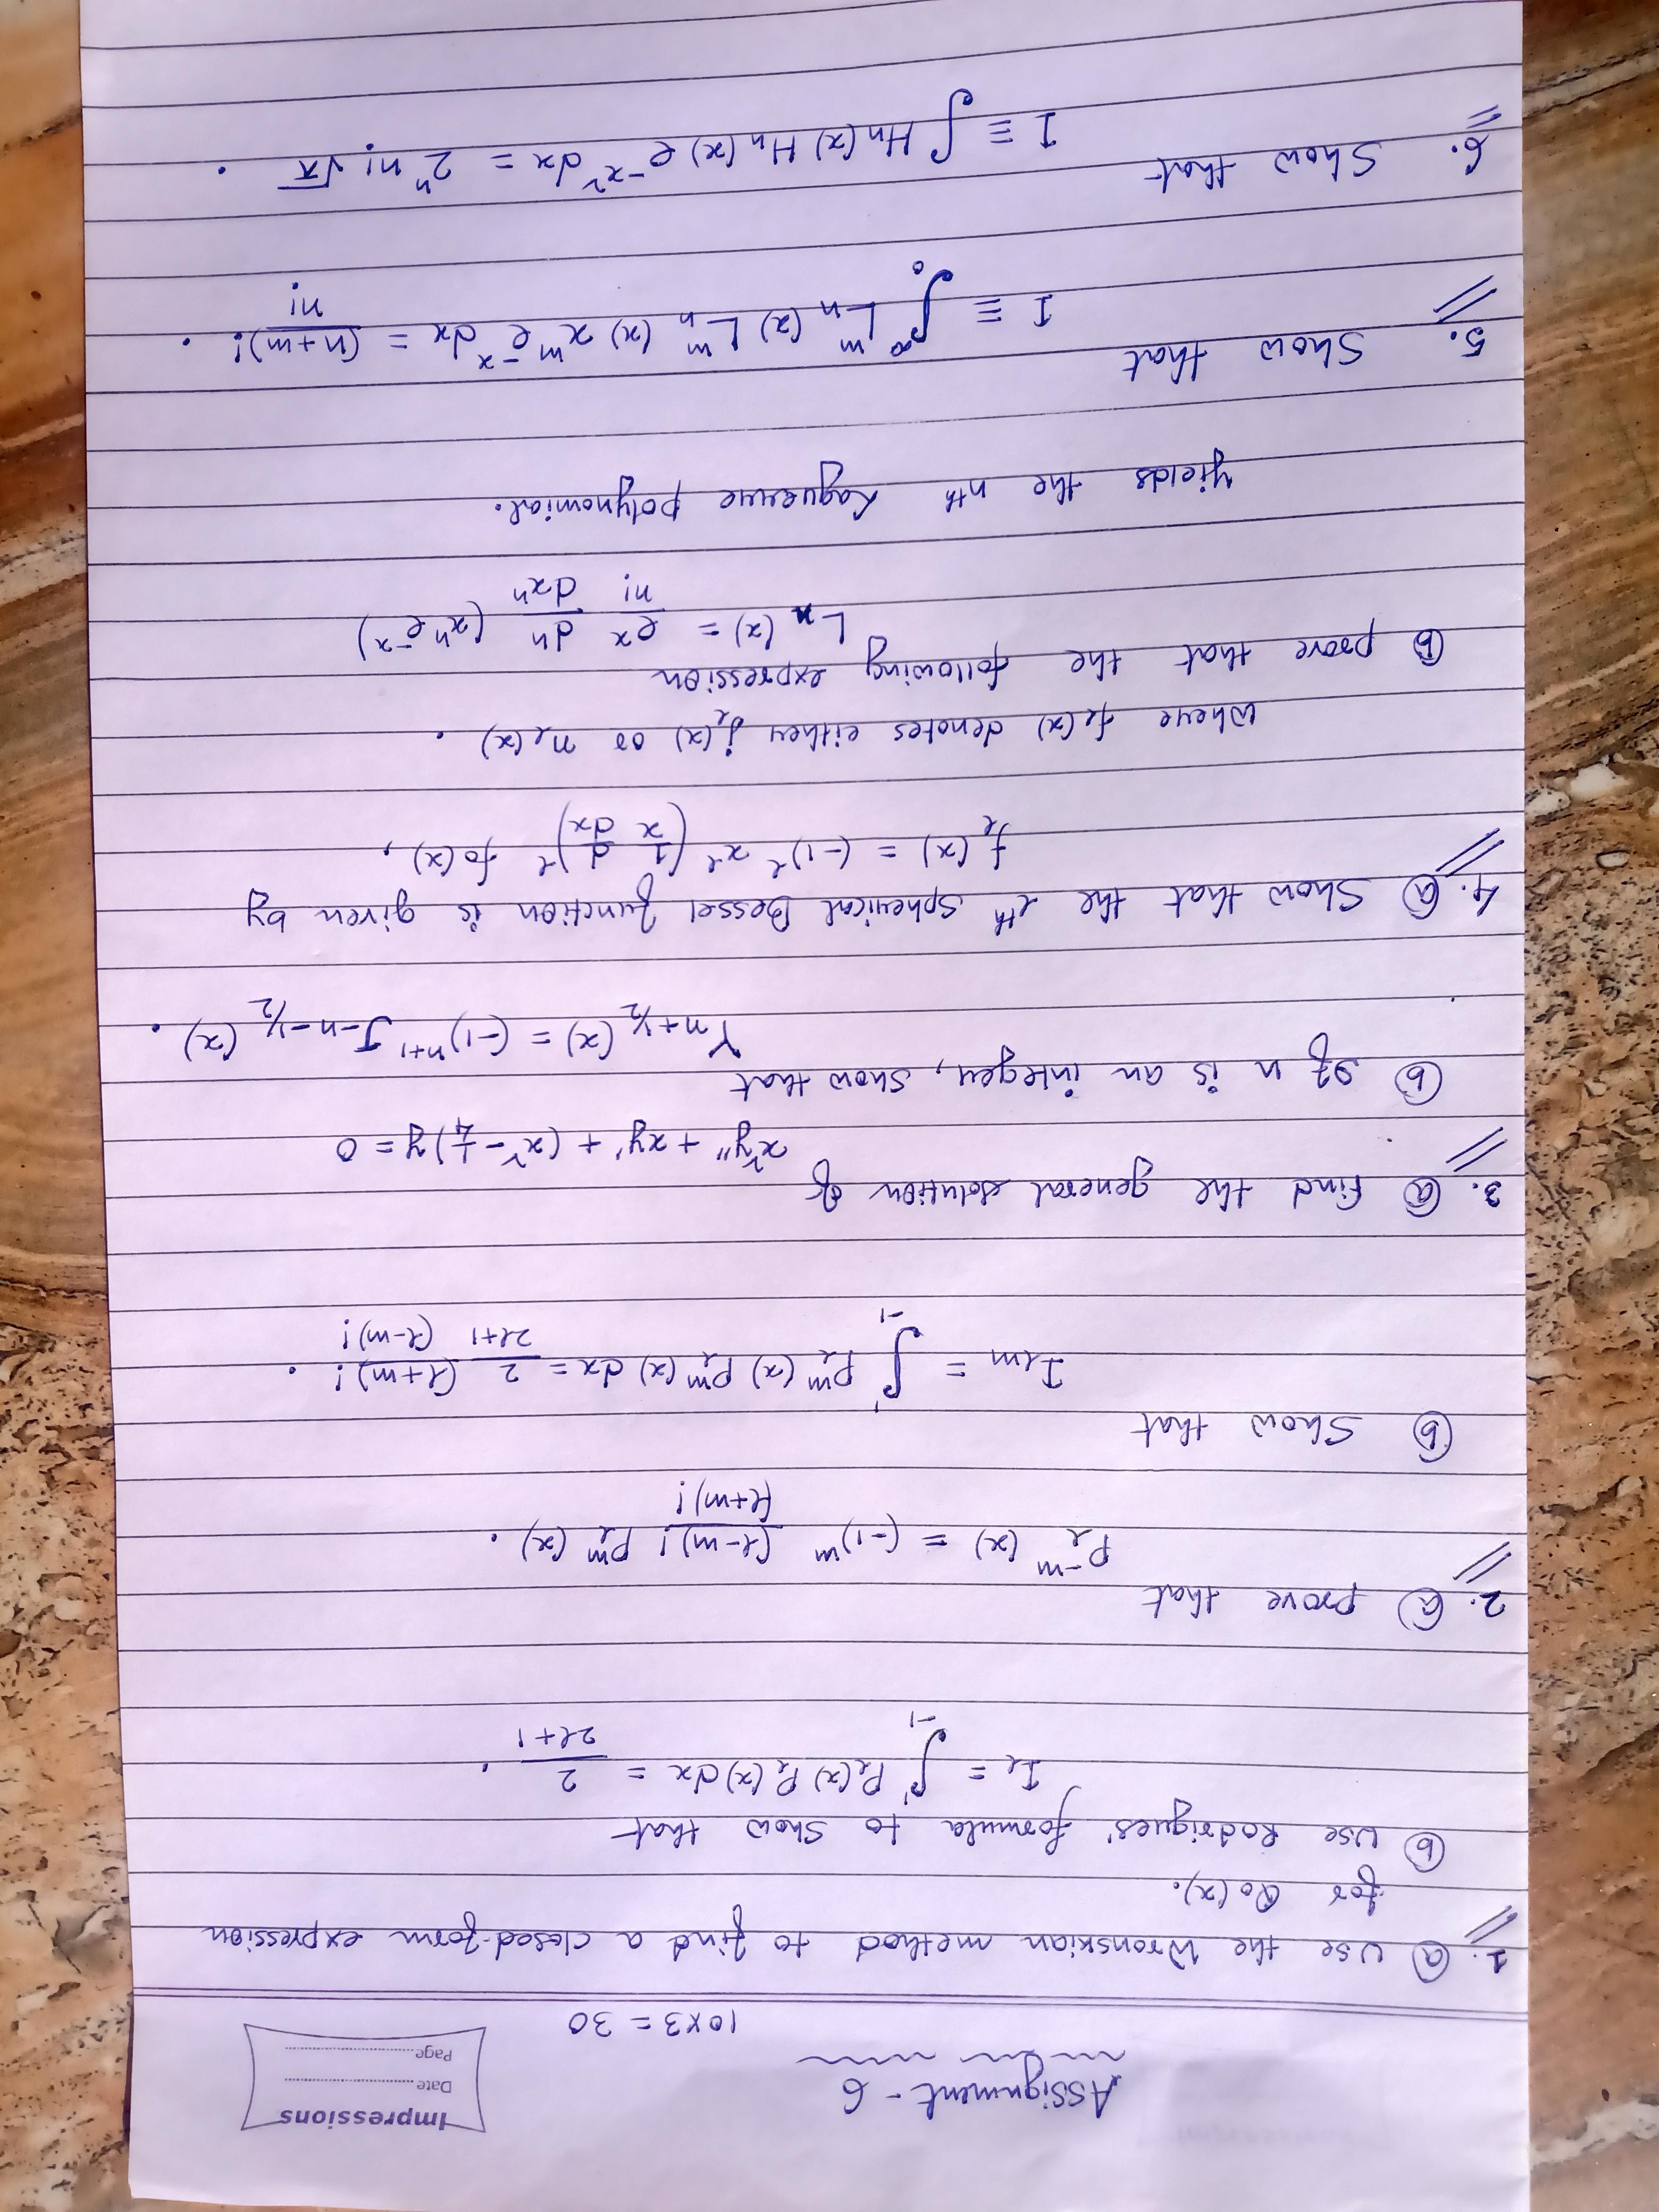 Assignment - 6
Impressions
Date
Page
10x3 = 30
1. (a) Use the Wronskian method to find a closed-form expression
for Q₀(x).
(b) Use Rodrigues' formula to show that
I_ℓ = ∫₋₁¹ P_ℓ(x) P_ℓ(x) dx = 2/(2ℓ+1) .
2. (a) prove that
P_ℓ^{-m} (x) = (-1)^m (ℓ-m)!/(ℓ+m)! P_ℓ^m (x) .
(b) Show that
I_{ℓm} = ∫₋₁¹ P_ℓ^m (x) P_ℓ^m (x) dx = 2/(2ℓ+1) (ℓ+m)!/(ℓ-m)! .
3. (a) Find the general solution of
x²y'' + xy' + (x² - 1/4) y = 0
(b) If n is an integer, show that
Y_{n+1/2} (x) = (-1)^{n+1} J_{-n-1/2} (x) .
4. (a) Show that the ℓth spherical Bessel function is given by
f_ℓ (x) = (-1)^ℓ x^ℓ (1/x d/dx)^ℓ f₀(x) ,
where f_ℓ(x) denotes either j_ℓ(x) or n_ℓ(x) .
(b) prove that the following expression
L_n (x) = e^x/n! d^n/dx^n (x^n e^{-x})
yields the nth Laguerre polynomial.
5. Show that
I ≡ ∫₀^∞ L_n^m (x) L_n^m (x) x^m e^{-x} dx = (n+m)!/n! .
6. Show that
I ≡ ∫ H_n(x) H_n(x) e^{-x²} dx = 2^n n! √π .